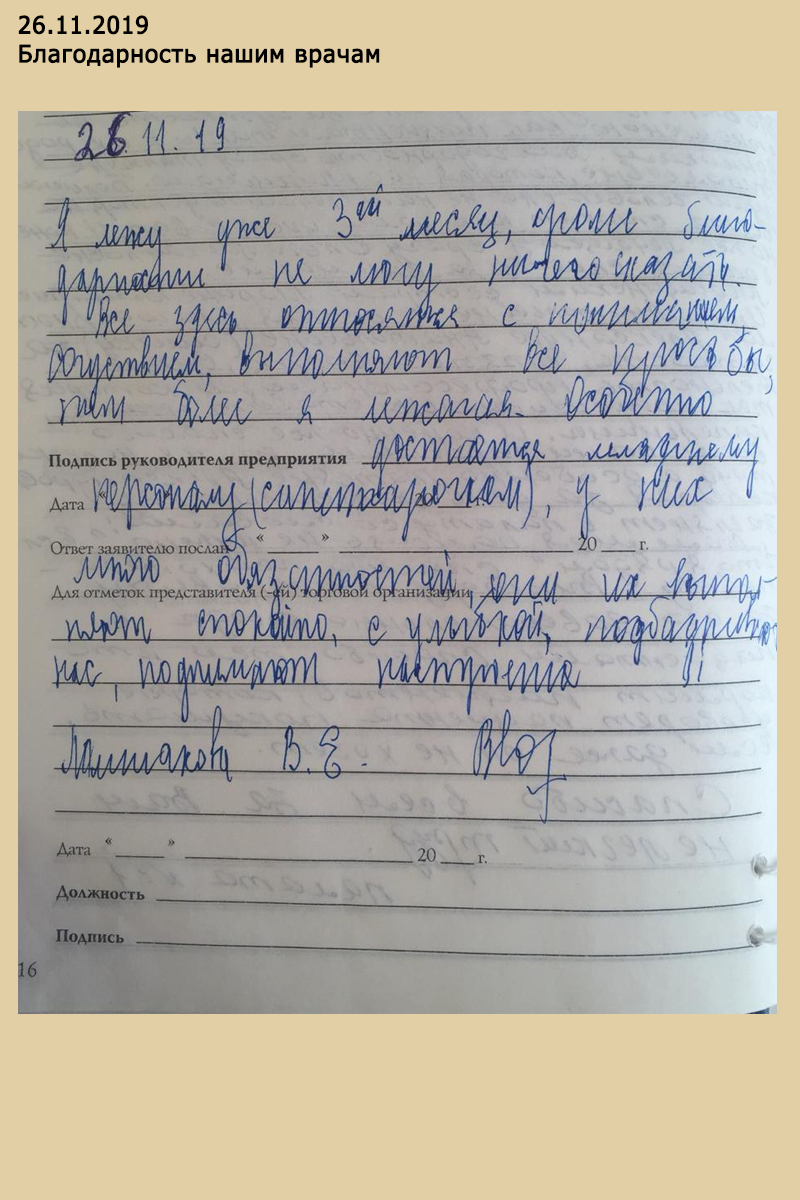 26.11.2019
Благодарность нашим врачам
26.11.19
Я лежу уже 3ий месяц, кроме благо-
дарности не могу ничего сказать.
Все здесь относятся с пониманием,
сочуствием, выполняют все просьбы,
тем более я лежачая. Особенно
Подпись руководителя предприятия достается младшему
Дата персоналу (санитарочкам), у них
Ответ заявителю послан « » 20 г.
много обязанностей, они их выпол-
Для отметок представителя (-ей) торговой организации
няют спокойно, с улыбкой, подбадривают
нас, поднимают настроение !!
В.Е.
Дата « » 20 г.
Должность
Подпись
16